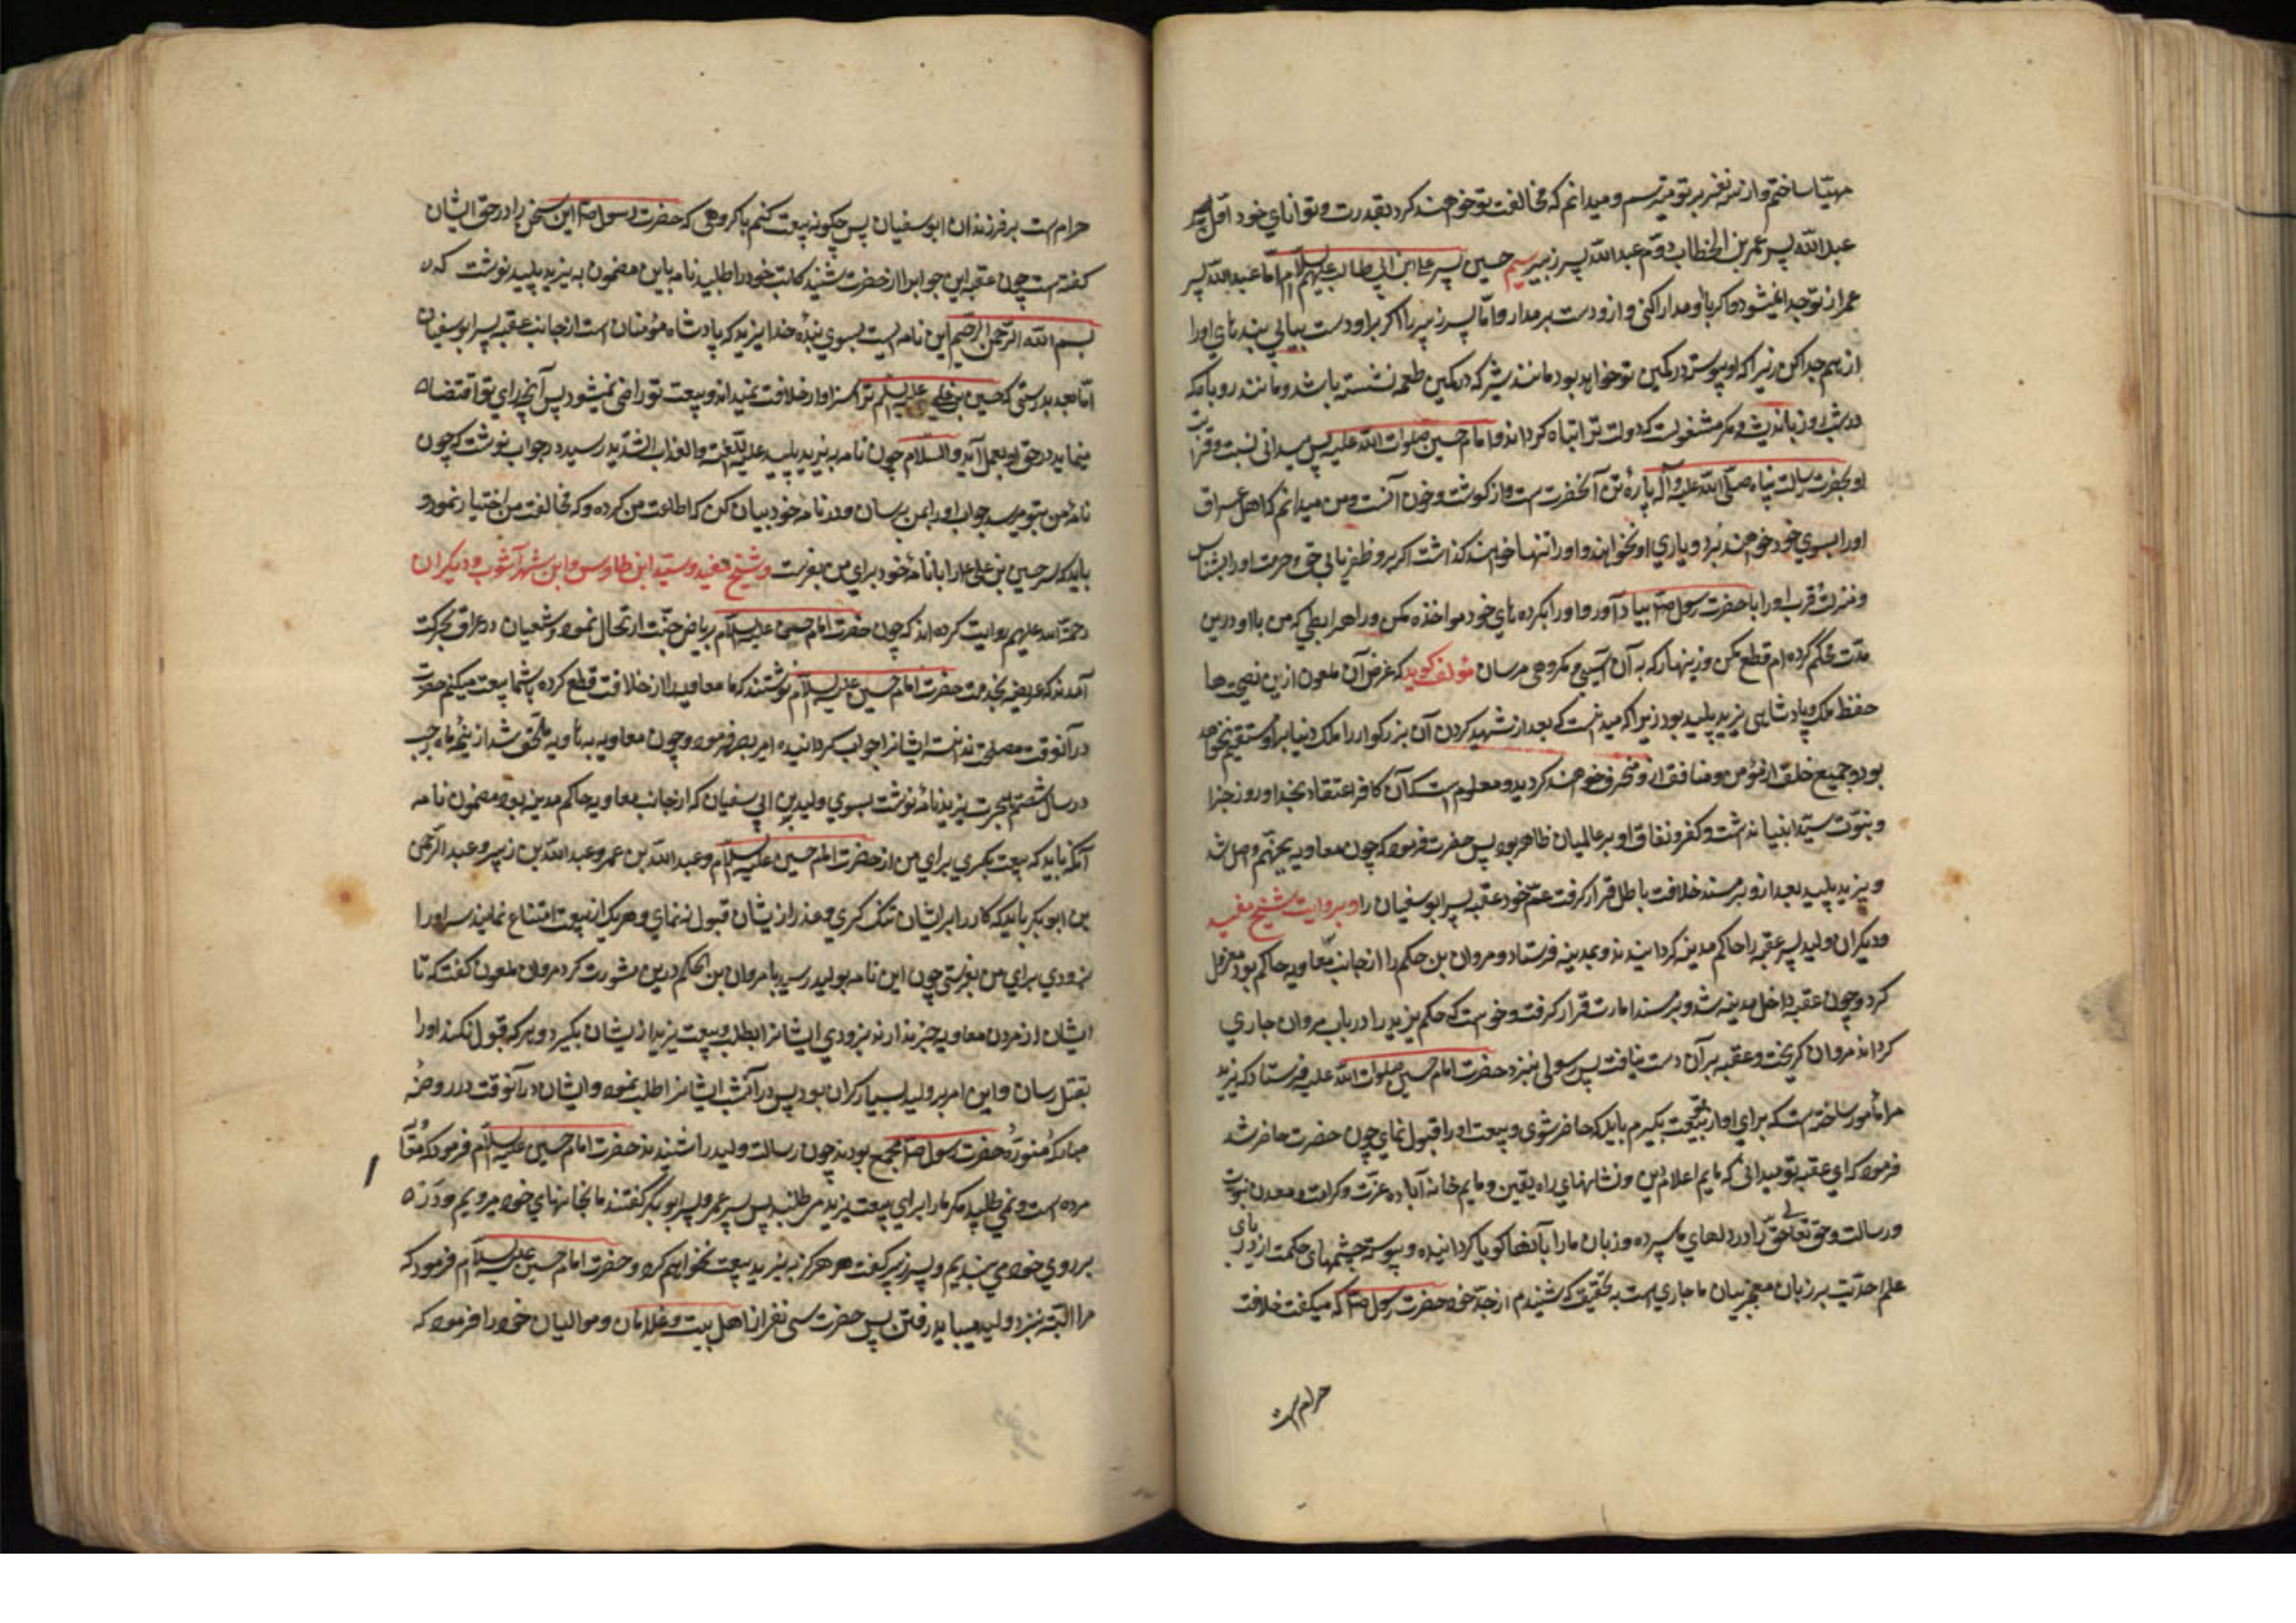 مهیّا ساختم و از سه نفر بر تو میترسم و میدانم که مخالفت تو خواهند کرد بقدرت و توانای خود اوّل
عبد الله پسر عمر بن الخطاب دوّم عبد الله پسر زبیر سیم حسین پسر علی ابن ابی طالب علیهم السلام امّا عبد الله پسر
عمر از تو جدا نمیشود و اگر با او مدارا کنی و ازو دست برمدار و امّا پسر زبیر را اگر براو دست بیابی بندهای اورا
از هم جدا کن زیرا که او پیوسته در کمین تو خواهد بود مانند شیر که در کمین طعمه نشسته باشد و مانند روباه که
در شب و روز باندیشه و مکر مشغولست که دولت ترا تباه گرداند و امام حسین صلوات الله علیه پس میدانی نسبت و قرابت
او بحضرت رسالت پناه صلّی الله علیه و آله پارهٔ تن آنحضرت است و از گوشت و خون آنست و من میدانم که اهل عراق
اورا بسوی خود خواهند برد و یاری او نخواهند و اورا تنها خواهند گذاشت اگر برو ظفر یابی حق و حرمت اورا بشناس
و منزلت قرب اورا با حضرت رسول ص بیاد آور و اورا بکرده های خود مواخذه مکن و راهم رابطی که من بااو درین
مدّت محکم کرده ام قطع مکن و زینهار که به آن آسیبی و مکروهی مرسان مؤلف گوید که غرض آن ملعون ازین نصیحت ها
حفظ ملک و پادشاهی یزید پلید بود زیرا که میدانست که بعد از شهید کردن آن بزرگوار را ملک دنیا براو مستقیم نخواهد
بود و جمیع خلق از مؤمن و منافق ازو منحرف خواهند گردید و معلوم است که آن کافر اعتقاد بخدا و روز جزا
و بنبوّت سیّد انبیا نداشت و کفر و نفاق او بر عالمیان ظاهر بود پس حضرت فرمود که چون معاویه بجهنّم واصل شد
و یزید پلید بعد ازو بر مسند خلافت باطل قرار گرفت عمّ خود عقبه پسر ابوسفیان را و بروایت شیخ مفید
و دیگران ولید پسر عقبه را حاکم مدینه گردانیدند و بمدینه فرستاد و مروان بن حکم را از جانب معاویه حاکم بود معزول
کرد و چون عقبه داخل مدینه شد و بر مسند امارت قرار گرفت و خواست که حکم یزید را در باب مروان جاری
گرداند مروان گریخت و عقبه بر آن دست نیافت پس رسولی بنزد حضرت امام حسین صلوات الله علیه فرستاد که یزید
مرا مأمور ساخته است که برای او از تو بیعت بگیرم باید که حاضر شوی و بیعت اورا قبول نمای چون حضرت حاضر شد
فرمود که ای عقبه تو میدانی که مایم اعلام دین و نشانهای راه یقین و مایم خانه آباده عزّت و کرامت و معدن نبوّت
و رسالت و حق تعالی حق را در دلهای ما سپرده و زبان مارا بآنها گویا گردانیده و پیوسته چشمهای حکمت از دریای
علم احدّیت بر زبان معجز بیان ما جاری است بتحقیق که شنیدم از جدّ خود حضرت رسول ص که میگفت خلافت
حرام است
حرام است بر فرزندان ابو سفیان پس چگونه بیعت کنم با گروهی که حضرت رسول ص این سخن را در حق ایشان
گفته است چون عقبه این جوابرا از حضرت شنید کاتب خود را طلبید نامه باین مضمون به یزید پلید نوشت که
بسم الله الرّحمن الرّحیم این نامه ایست بسوی بندهٔ خدا یزید که پادشاه مؤمنان است از جانب عقبه پسر ابوسفیان
امّا بعد بدرستی که حسین بن علی علیه السلم ترا سزاوار خلافت نمیداند و ببیعت تو راضی نمیشود پس آنچه رای تو اقتضا
مینماید در حق او بعمل آید و السلام چون نامه به یزید پلید علیه اللّعنه و العذاب الشّدید رسید در جواب نوشت که چون
نامهٔ من بتو میرسد جواب اورا بمن برسان و در نامهٔ خود بیان کن که اطاعت من کرده و که مخالفت من اختیار نمود و
باید که سر حسین بن علی ع را با نامهٔ خود برای من بفرست و شیخ مفید و سیّد ابن طاوس و ابن شهر آشوب و دیگران
رحمة الله علیهم روایت کرده اند که چون حضرت امام حسن علیه السلام بریاض جنّت ارتحال نمود و شعیان در عراق بحرکت
آمدند که عریضه بخدمت حضرت امام حسین علیه السلام نوشتند که ما معاویه را از خلافت قطع کرده با شما بیعت میکنیم حضرت
در آنوقت مصلحت ندانست ایشانرا جواب گردانیده امر بصبر فرمود و چون معاویه به هاویه ملحق شد از نیمهٔ ماه رجب
در سال شصتم هجرت یزید نامهٔ نوشت بسوی ولید بن ابی سفیان که از جانب معاویه حاکم مدینه بود مضمون نامه
آنکه باید که بیعت بگیری برای من از حضرت امام حسین علیه السلام و عبد الله بن عمر و عبد الله بن زبیر و عبد الرّحمن
بن ابوبکر باید که کار را بر ایشان تنگ گیری و عذر از یشان قبول ننمای و هر یک از بیعت امتناع نمایند سر اورا
بزودی برای من بفرستی چون این نامه بولید رسید با مروان بن الحکم درین مشورت کرد مروان ملعون گفت که تا
ایشان از مردن معاویه خبر ندارند بزودی ایشانرا بطلب و بیعت یزید از یشان بگیر و هر که قبول نکند اورا
بقتل رسان و این امر بر ولید بسیار گران بود پس در آنشب ایشانرا طلب نمود و ایشان در آنوقت در روضهٔ
مبارکهٔ منوّرهٔ حضرت رسول ص مجتمع بودند چون رسالت ولید را شنیدند حضرت امام حسین علیه السلام فرمود که
مرده است و نمی طلبد مگر مارا برای بیعت یزید می طلبد پس پسر عمر و پسر ابوبکر گفتند ما بخانهای خود میرویم و در
بر روی خود می بندیم و پسر زبیر گفت من هرگز به یزید بیعت نخواهم کرد و حضرت امام حسین علیه السلام فرمود که
مرا البتّه بنزد ولید میباید رفتن پس حضرت سی نفر از اهل بیت و غلامان و موالیان خود را فرمود که